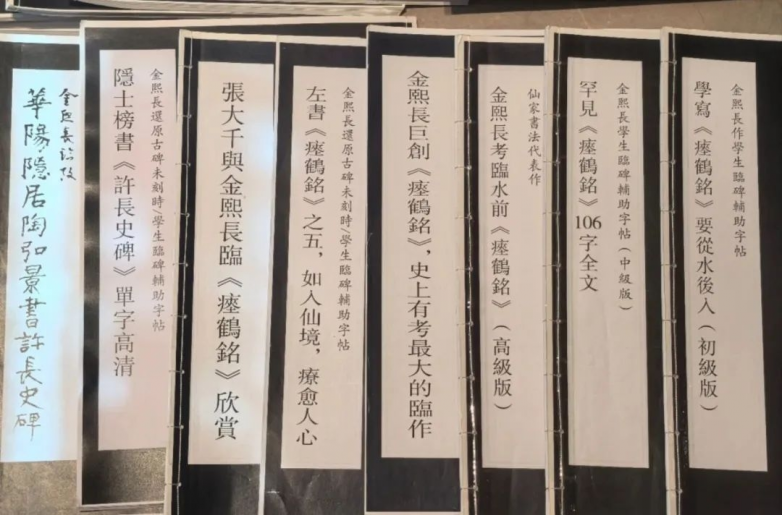 金熙長作學生臨碑輔助字帖
學寫《瘞鶴銘》要從水後入（初級版）
金熙長學生臨碑輔助字帖（中級版）
罕見《瘞鶴銘》106字全文
仙家書法代表作
金熙長考臨水前《瘞鶴銘》（高級版）
金熙長巨創《瘞鶴銘》，史上有考最大的臨作
金熙長還原古碑未刻時/學生臨碑輔助字帖
左書《瘞鶴銘》之五，如入仙境，療愈人心
張大千與金熙長臨《瘞鶴銘》欣賞
金熙長還原古碑未刻時/學生臨碑輔助字帖
隱士榜書《許長史碑》單字高清
金熙長臨
華陽隱居陶弘景書許長史碑